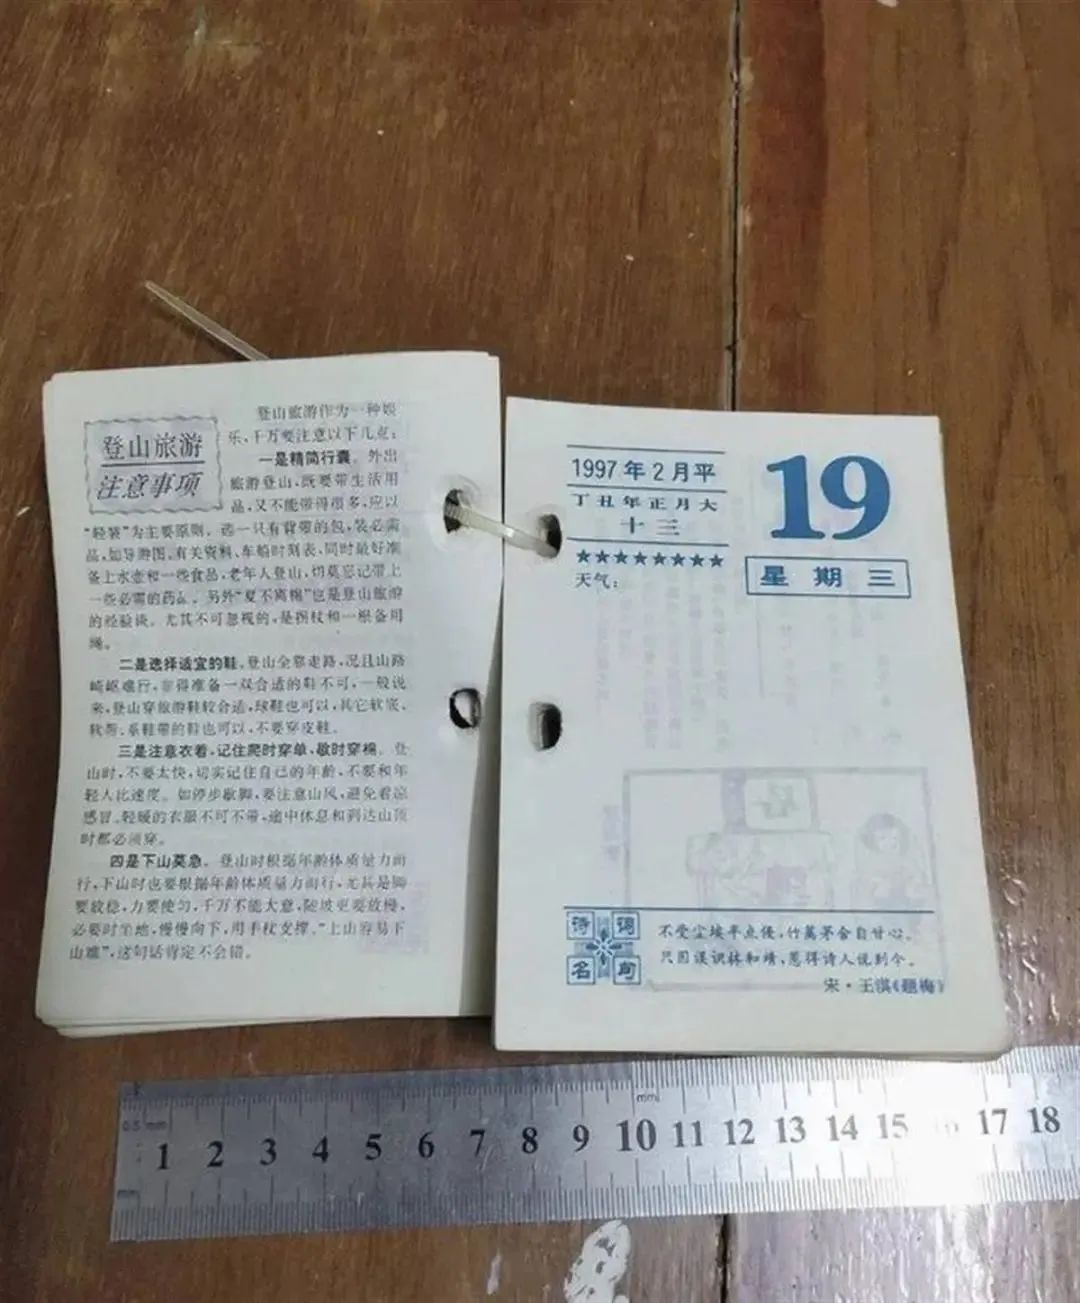 登山旅游
注意事项
登山旅游作为一种娱
乐,千万要注意以下几点:
一是精简行囊。外出
旅游登山,既要带生活用
品,又不能带得很多,应以
“轻装”为主要原则。选一只有背带的包,装必需
品,如导游图、有关资料、车船时刻表,同时最好准
备上水壶和一些食品,老年人登山,切莫忘记带上
一些必需的药品。另外“夏不离棉”也是登山旅游
的经验谈。尤其不可忽视的,是拐杖和一根备用
绳。
二是选择适宜的鞋。登山全靠走路,况且山路
崎岖难行,非得准备一双合适的鞋不可,一般说
来,登山穿旅游鞋较合适,球鞋也可以,其它软底、
软帮、系鞋带的鞋也可以,不要穿皮鞋。
三是注意衣着。记住爬时穿单,歇时穿棉。登
山时,不要太快,切实记住自己的年龄,不要和年
轻人比速度。如停步歇脚,要注意山风,避免着凉
感冒。轻暖的衣服不可不带,途中休息和到达山顶
时都必须穿。
四是下山莫急。登山时根据年龄体质量力而
行,下山时也要根据年龄体质量力而行,尤其是脚
要放稳,力要使匀,千万不能大意,陡坡更要放慢,
必要时坐地,慢慢向下,用手杖支撑。“上山容易下
山难”,这句话肯定不会错。
1997年2月平
丁丑年正月大
十三
★★★★★★★★
天气:
19
星期三
诗词
名句
不受尘埃半点侵,竹篱茅舍自甘心。
只因误识林和靖,惹得诗人说到今。
宋·王淇《题梅》
0.5mm
mm
mm
1 2 3 4 5 6 7 8 9 10 11 12 13 14 15 17 18